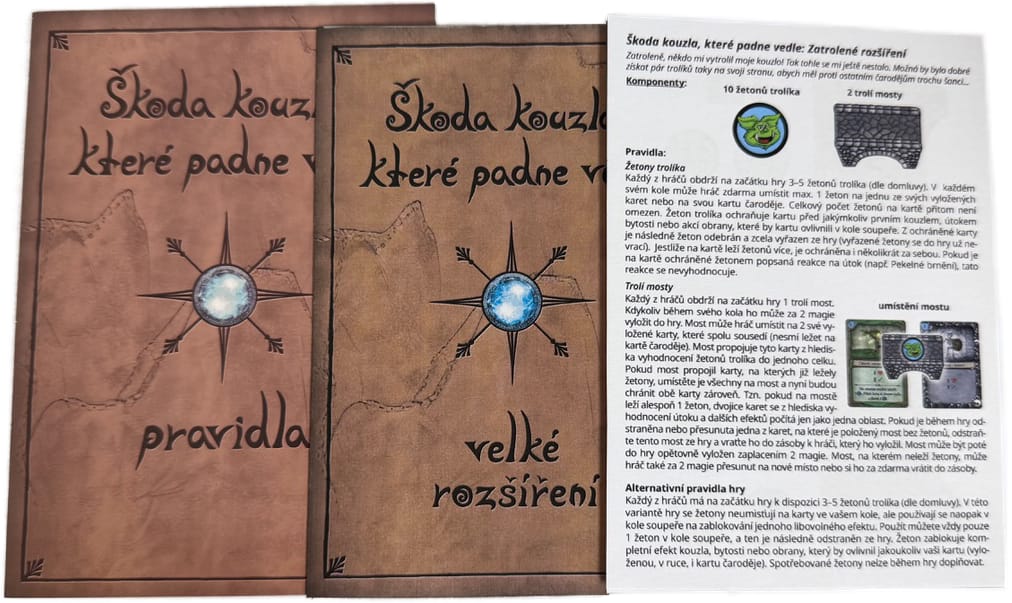 Škoda kouzl
které padne v
pravidla
Škoda kouzl
které padne v
velké
rozšíření
Škoda kouzla, které padne vedle: Zatrolené rozšíření
Zatroleně, někdo mi vytrolil moje kouzlo! Tak tohle se mi ještě nestalo. Možná by bylo dobré
získat pár trolíků taky na svoji stranu, abych měl proti ostatním čarodějům trochu šanci...
Komponenty:
10 žetonů trolíka
2 trolí mosty
Pravidla:
Žetony trolíka
Každý z hráčů obdrží na začátku hry 3–5 žetonů trolíka (dle domluvy). V každém
svém kole může hráč zdarma umístit max. 1 žeton na jednu ze svých vyložených
karet nebo na svou kartu čaroděje. Celkový počet žetonů na kartě přitom není
omezen. Žeton trolíka ochraňuje kartu před jakýmkoliv prvním kouzlem, útokem
bytosti nebo akcí obrany, které by kartu ovlivnili v kole soupeře. Z ochráněné karty
je následně žeton odebrán a zcela vyřazen ze hry (vyřazené žetony se do hry už ne-
vrací). Jestliže na kartě leží žetonů více, je ochráněna i několikrát za sebou. Pokud je
na kartě ochráněné žetonem popsaná reakce na útok (např. Pekelné brnění), tato
reakce se nevyhodnocuje.
Trolí mosty
Každý z hráčů obdrží na začátku hry 1 trolí most.
Kdykoliv během svého kola ho může za 2 magie
vyložit do hry. Most může hráč umístit na 2 své vy-
ložené karty, které spolu sousedí (nesmí ležet na
kartě čaroděje). Most propojuje tyto karty z hledis-
ka vyhodnocení žetonů trolíka do jednoho celku.
Pokud most propojil karty, na kterých již ležely
žetony, umístěte je všechny na most a nyní budou
chránit obě karty zároveň. Tzn. pokud na mostě
leží alespoň 1 žeton, dvojice karet se z hlediska vy-
hodnocení útoku a dalších efektů počítá jen jako jedna oblast. Pokud je během hry od-
straněna nebo přesunuta jedna z karet, na které je položený most bez žetonů, odstraň-
te tento most ze hry a vraťte ho do zásoby k hráči, který ho vyložil. Most může být poté
do hry opětovně vyložen zaplacením 2 magie. Most, na kterém neleží žetony, může
hráč také za 2 magie přesunout na nové místo nebo si ho za zdarma vrátit do zásoby.
umístění mostu
Alternativní pravidla hry
Každý z hráčů má na začátku hry k dispozici 3–5 žetonů trolíka (dle domluvy). V této
variantě hry se žetony neumisťují na karty ve vašem kole, ale používají se naopak v
kole soupeře na zablokování jednoho libovolného efektu. Použít můžete vždy pouze
1 žeton v kole soupeře, a ten je následně odstraněn ze hry. Žeton zablokuje kom-
pletní efekt kouzla, bytosti nebo obrany, který by ovlivnil jakoukoliv vaši kartu (vylo-
ženou, v ruce, i kartu čaroděje). Spotřebované žetony nelze během hry doplňovat.